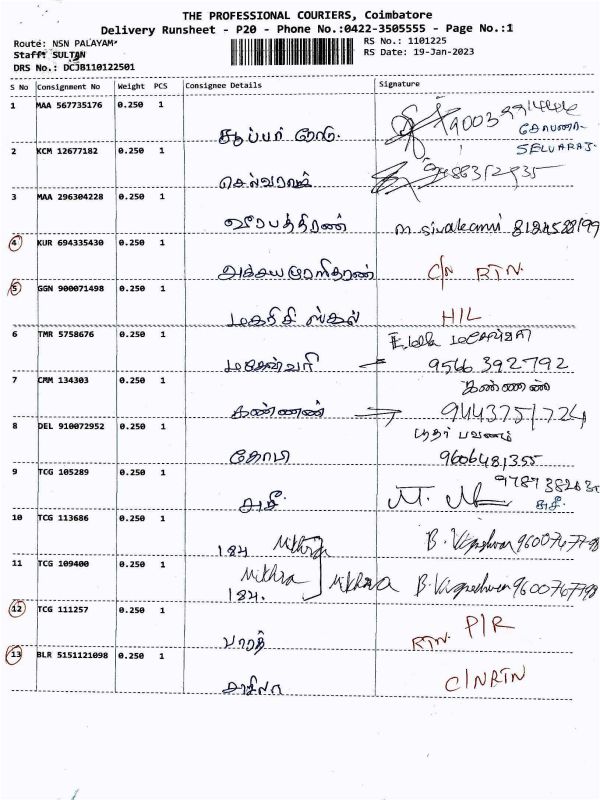 THE PROFESSIONAL COURIERS, Coimbatore
Delivery Runsheet - P20 - Phone No.:0422-3505555 - Page No.:1
Route: NSN PALAYAM
Staff: SULTAN
DRS No.: DCJB110122501
RS No.: 1101225
RS Date: 19-Jan-2023
S No Consignment No Weight PCS Consignee Details Signature
1 MAA 567735176 0.250 1
சூப்பர்
SELVARAJ
2 KCM 12677182 0.250 1
செல்வராஜ்
3 MAA 296304228 0.250 1
வீரபத்திரன் m. sivakami
4 KUR 694335430 0.250 1
C/N RTN.
5 GGN 900071498 0.250 1
மகரிசி ஸ்கூல் H/L
6 TMR 5758676 0.250 1
மகேஸ்வரி 9566 392792
7 CMM 134303 0.250 1
கண்ணன்
கண்ணன் 9443751724
8 DEL 910072952 0.250 1
கோமி 9606481355
9 TCG 105289 0.250 1
10 TCG 113686 0.250 1
184 Mithra B. Vigneshwar 9600767798
11 TCG 109400 0.250 1
Mithra Mithra B. Vigneshwar 9600767798
184.
12 TCG 111257 0.250 1
பாரத் RTN. P/R
13 BLR 5151121098 0.250 1
C/N RTN